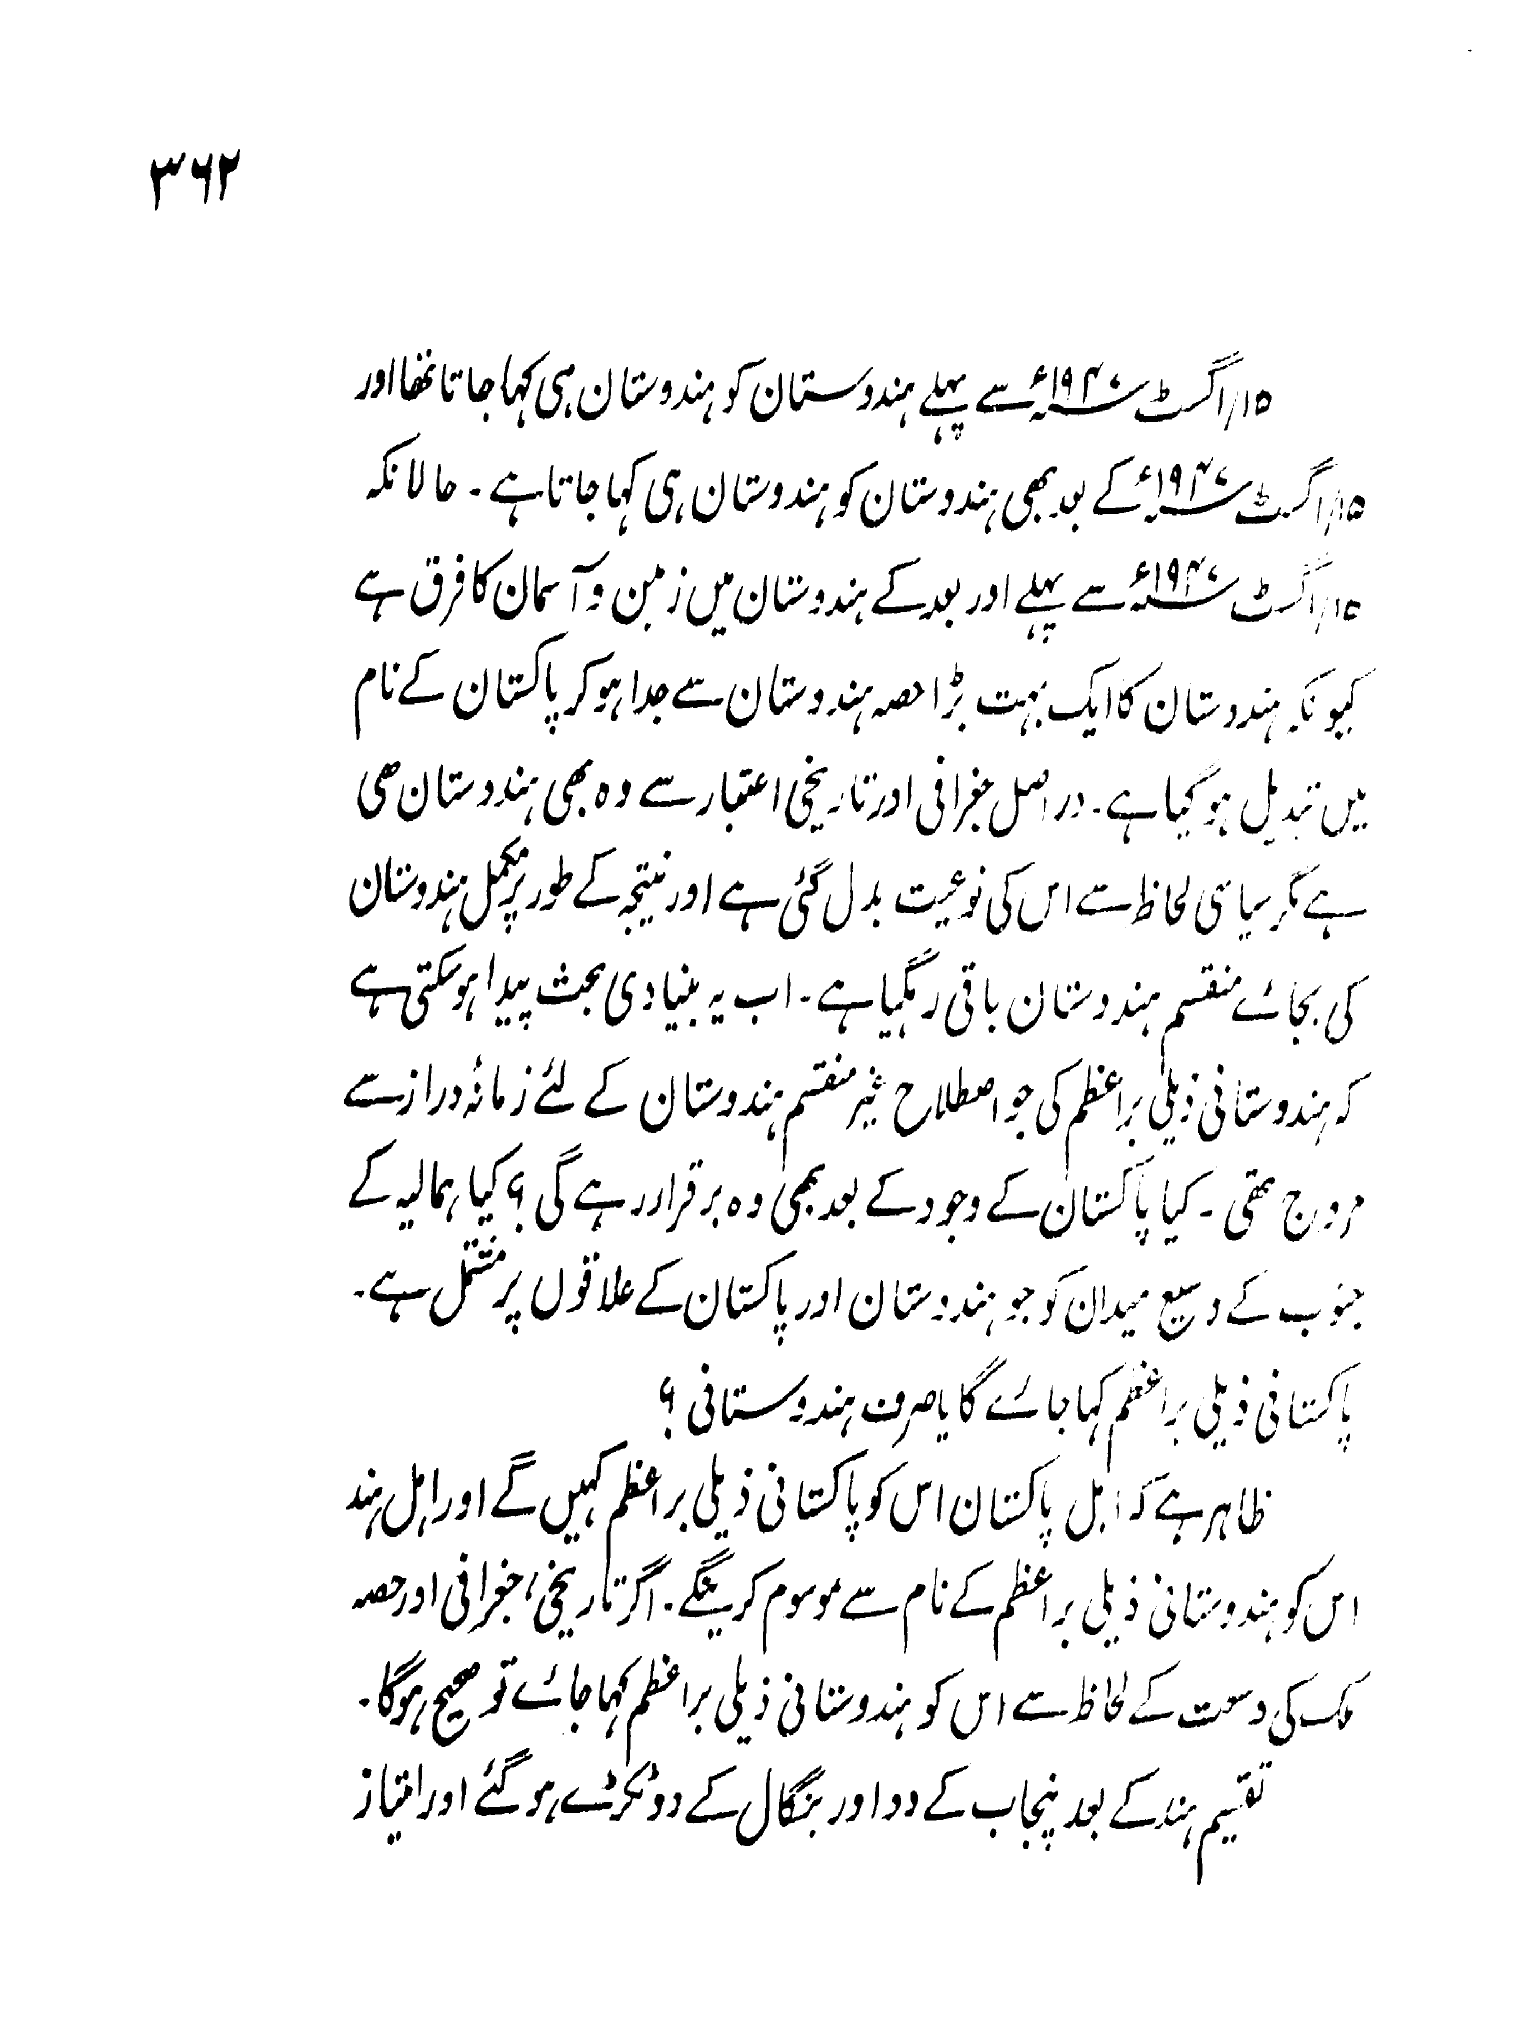 ۳۶۲
۱۵/اگست ۱۹۴۷ء سے پہلے ہندوستان کو ہندوستان ہی کہا جاتا تھا اور
۱۵/اگست ۱۹۴۷ء کے بعد بھی ہندوستان کو ہندوستان ہی کہا جاتا ہے ۔ حالانکہ
۱۵/اگست ۱۹۴۷ء سے پہلے اور بعد کے ہندوستان میں زمین و آسمان کا فرق ہے
کیونکہ ہندوستان کا ایک بہت بڑا حصہ ہندوستان سے جدا ہو کر پاکستان کے نام
میں تبدیل ہو گیا ہے ۔ دراصل جغرافی اور تاریخی اعتبار سے وہ بھی ہندوستان ھی
ہے مگر سیاسی لحاظ سے اس کی نوعیت بدل گئی ہے اور نتیجہ کے طور پر مکمل ہندوستان
کی بجائے منقسم ہندوستان باقی رہگیا ہے ۔ اب یہ بنیادی بحث پیدا ہو سکتی ہے
کہ ہندوستانی ذیلی براعظم کی جو اصطلاح غیر منقسم ہندوستان کے لئے زمانۂ دراز سے
مروج تھی ۔ کیا پاکستان کے وجود کے بعد بھی وہ برقرار رہے گی ؟ کیا ہمالیہ کے
جنوب کے وسیع میدان کو جو ہندوستان اور پاکستان کے علاقوں پر مشتمل ہے ۔
پاکستانی ذیلی براعظم کہا جائے گا یا صرف ہندوستانی ؟
ظاہر ہے کہ اہل پاکستان اس کو پاکستانی ذیلی براعظم کہیں گے اور اہل ہند
اس کو ہندوستانی ذیلی براعظم کے نام سے موسوم کرینگے ۔ اگر تاریخی، جغرافی اور حصہ
ملک کی وسعت کے لحاظ سے اس کو ہندوستانی ذیلی براعظم کہا جائے تو صحیح ہوگا ۔
تقسیم ہند کے بعد پنجاب کے دو اور بنگال کے دو ٹکڑے ہو گئے اور امتیاز